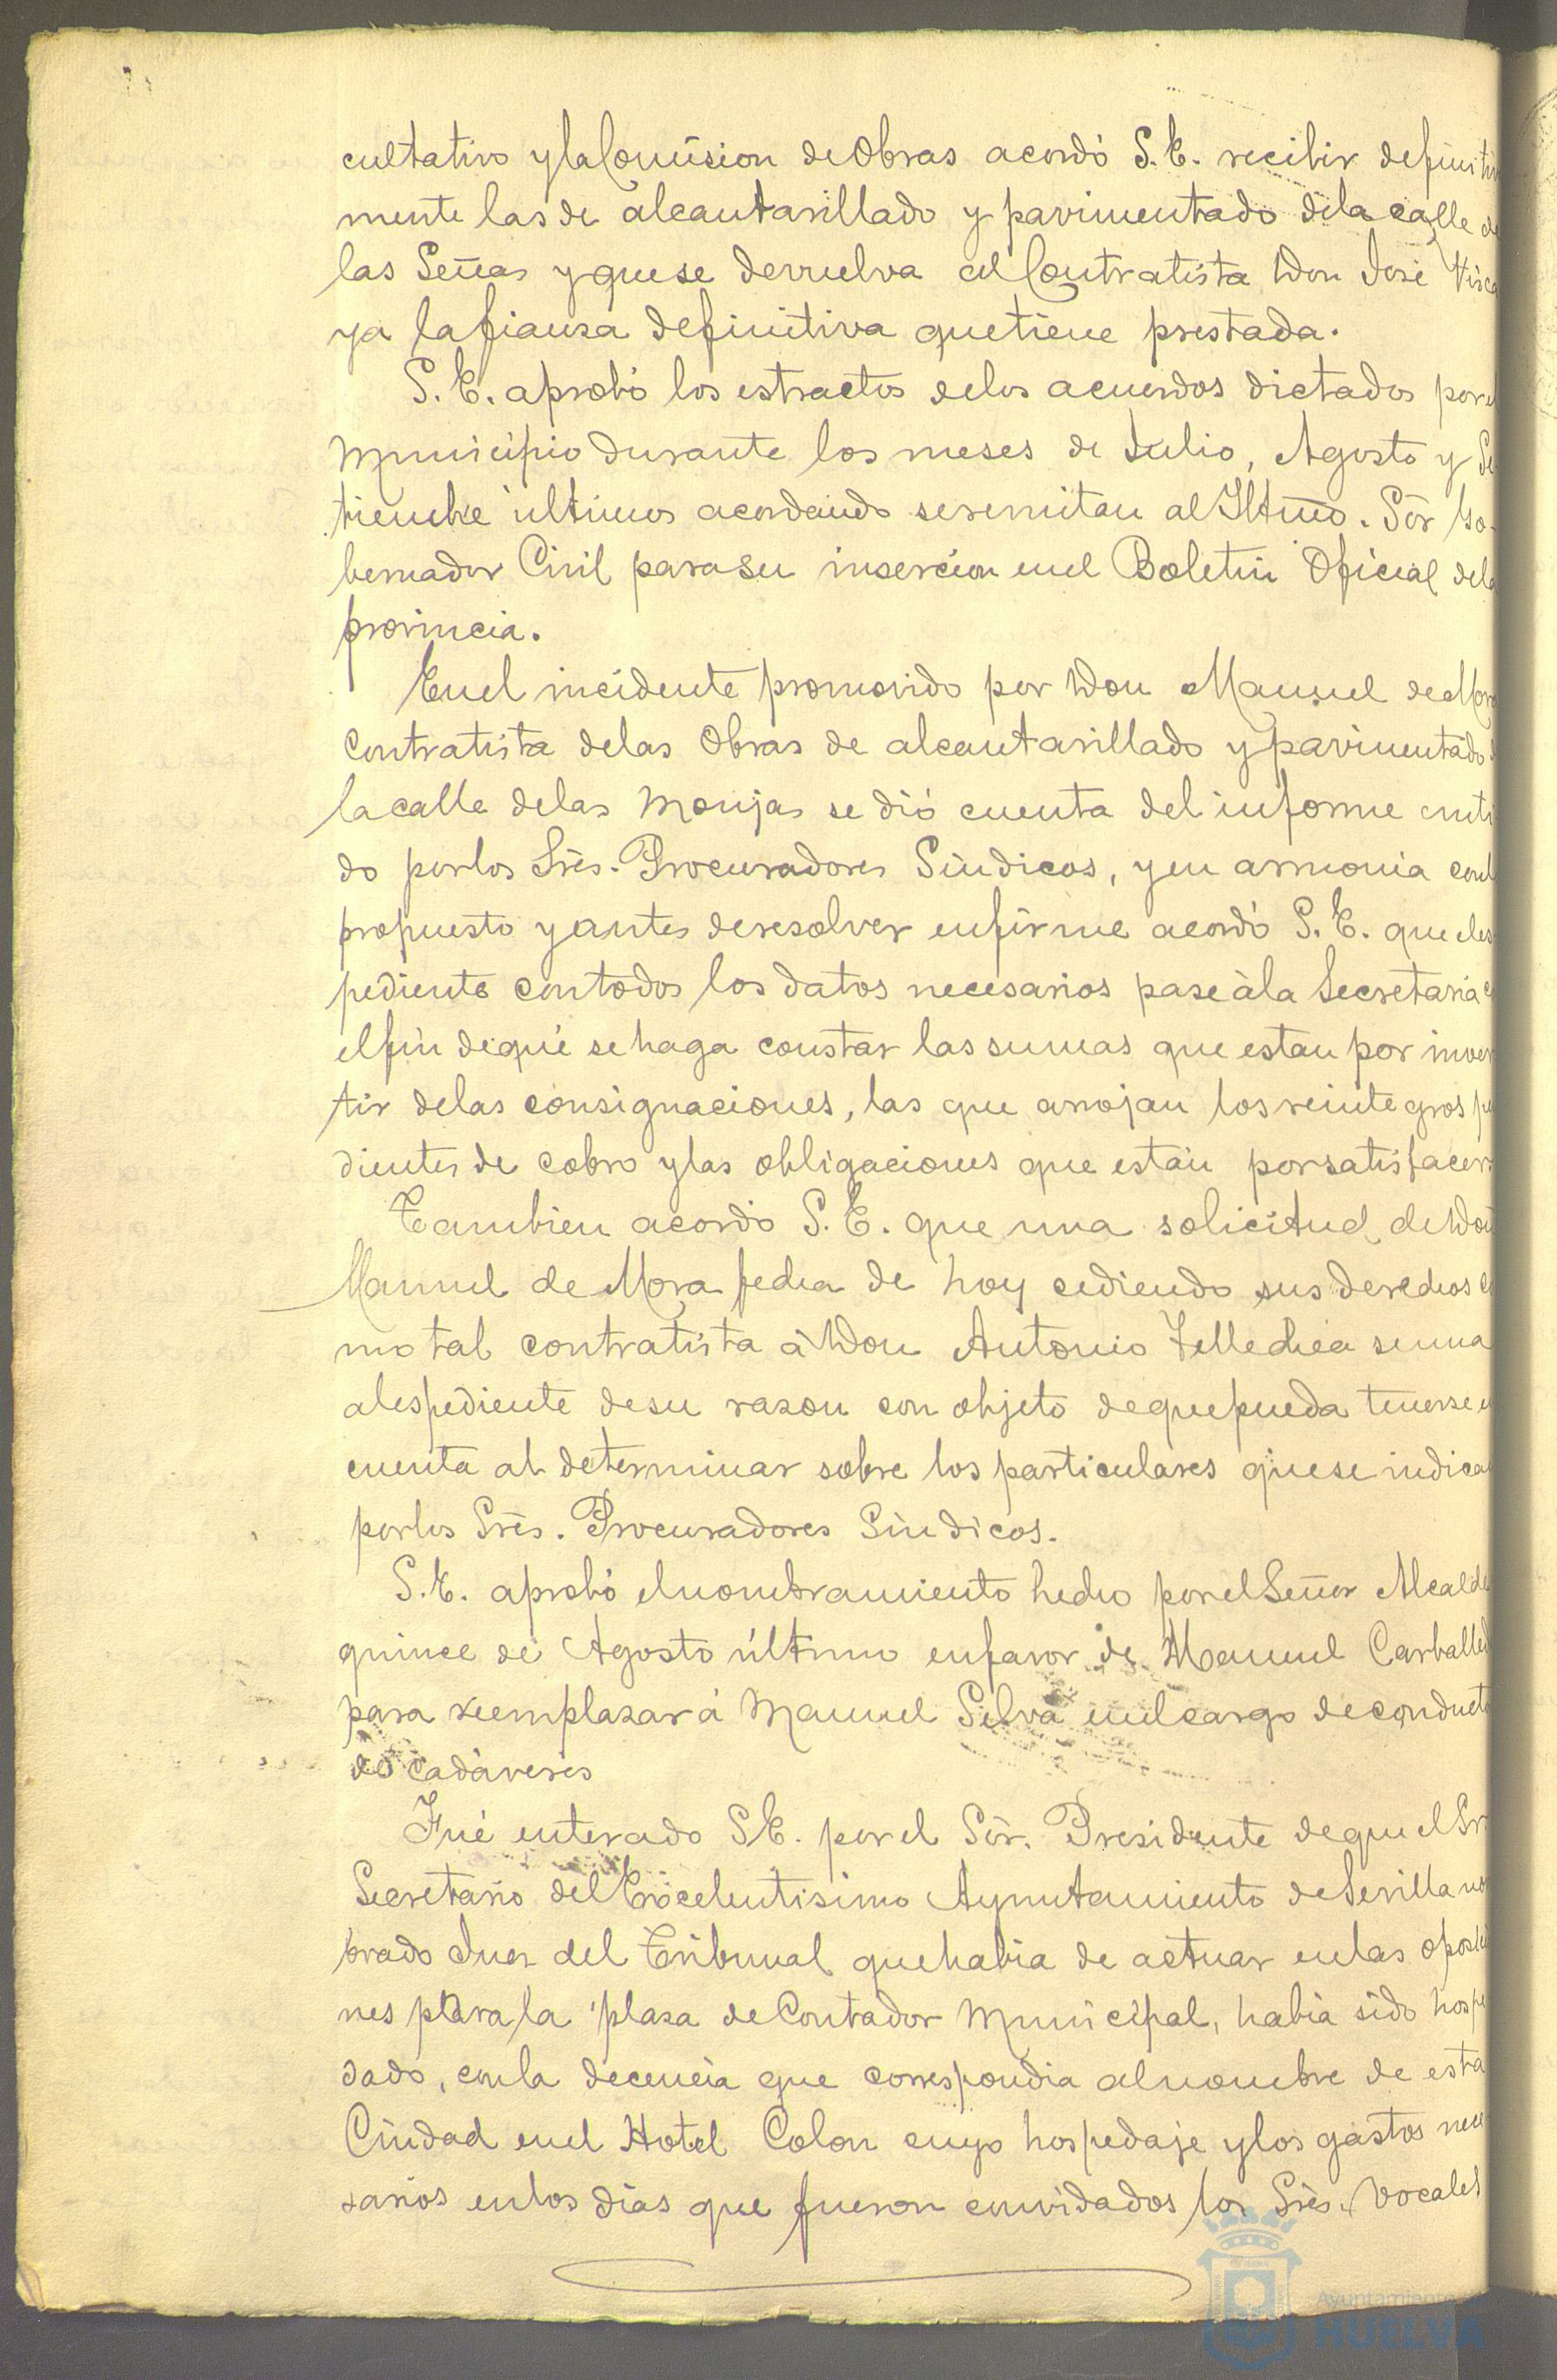 cultativo y la Comision de Obras acordó S. E. recibir definitiva
mente las de alcantarillado y pavimentado de la calle de
las Señas y que se devuelva al Contratista Don José Visca
ya la fianza definitiva que tiene prestada.
S. E. aprobó los estractos de los acuerdos dictados por el
Municipio durante los meses de Julio, Agosto y Se
tiembre últimos acordando se remitan al Iltmo. Sõr Go-
bernador Civil para su insercion en el Boletin Oficial de la
provincia.
En el incidente promovido por Don Manuel de Mora
contratista de las Obras de alcantarillado y pavimentado de
la calle de las Monjas se dió cuenta del informe emiti
do por los Srēs. Procuradores Síndicos, y en armonia con lo
propuesto y antes de resolver en firme acordó S. E. que el es
pediente con todos los datos necesarios pase à la Secretaria con
el fin de que se haga constar las sumas que estan por inver
tir de las consignaciones, las que arrojan los reintegros pen
dientes de cobro y las obligaciones que están por satisfacer
Tambien acordó S. E. que una solicitud de Don
Manuel de Mora fecha de hoy cediendo sus derechos co
mo tal contratista à Don Antonio Tellechea se una
al espediente de su razon con objeto de que pueda tenerse en
cuenta al determinar sobre los particulares que se indican
por los Srēs. Procuradores Síndicos.
S. E. aprobó el nombramiento hecho por el Señor Alcalde
quince de Agosto último en favor de Manuel Carballedo
para reemplazar á Manuel Silva en el cargo de conductor
de cadáveres
Fué enterado S E. por el Sõr. Presidente de que el Sr.
Secretario del Excelentisimo Ayuntamiento de Sevilla nom
brado Juez del Tribunal que habia de actuar en las oposicio
nes para la plaza de Contador Municipal, habia sido hospe
dado, con la decencia que correspondia al nombre de esta
Ciudad en el Hotel Colon cuyo hospedaje y los gastos nece
sarios en los dias que fueron convidados los Srēs. Vocales
Ayuntamiento
HUELVA